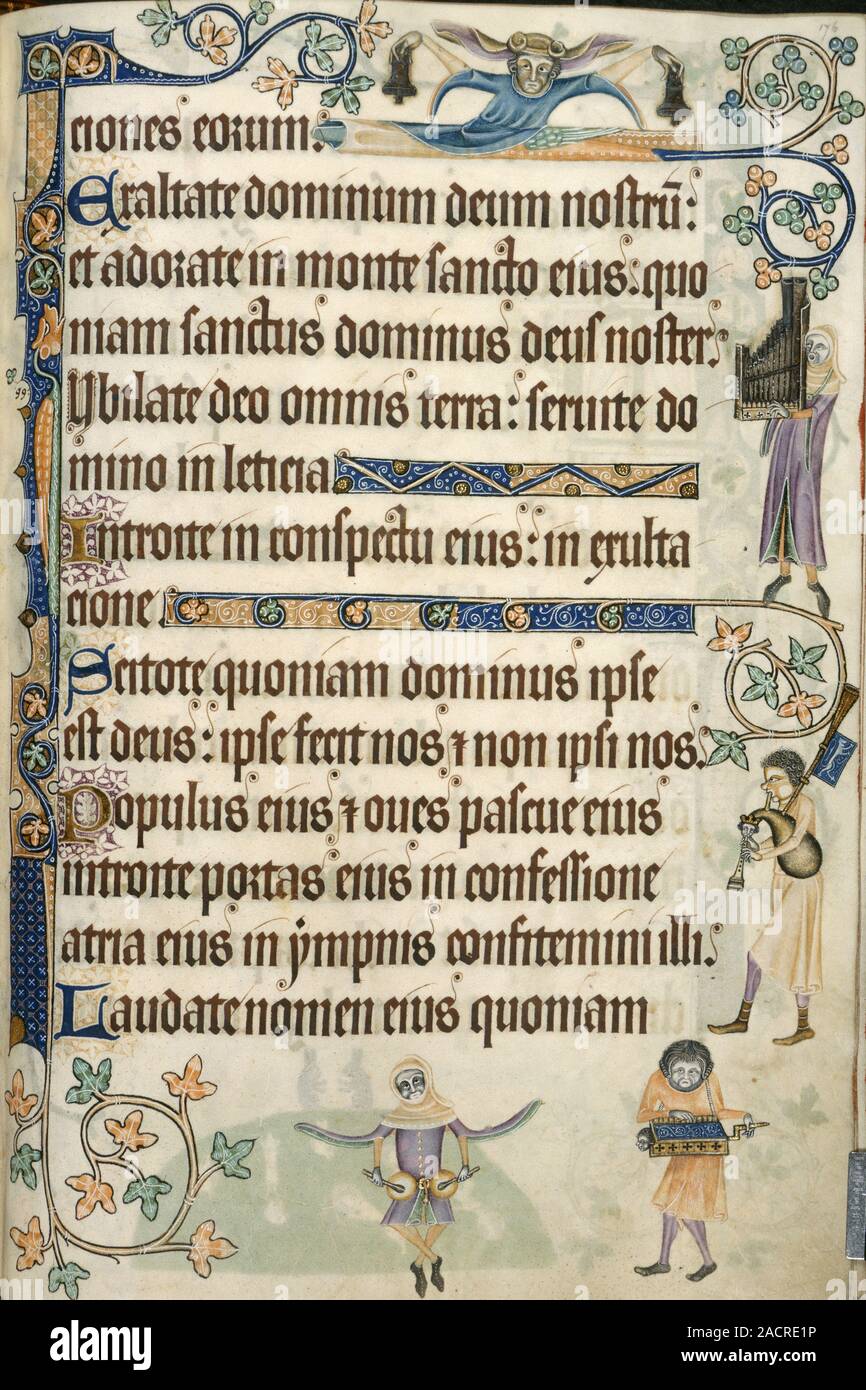 176
ciones eorum.
Exaltate dominum deum nostrū:
et adorate in monte sancto eius: quo
niam sanctus dominus deus noster.
99
Iubilate deo omnis terra: seruite do
mino in leticia.
Introite in conspectu eius: in exulta
cione.
Scitote quoniam dominus ipse
est deus: ipse fecit nos ⁊ non ipsi nos.
Populus eius ⁊ oues pascue eius
introite portas eius in confessione
atria eius in ympnis confitemini illi.
Laudate nomen eius quoniam
a
alamy
alamy
Image ID: 2ACRE1P
www.alamy.com